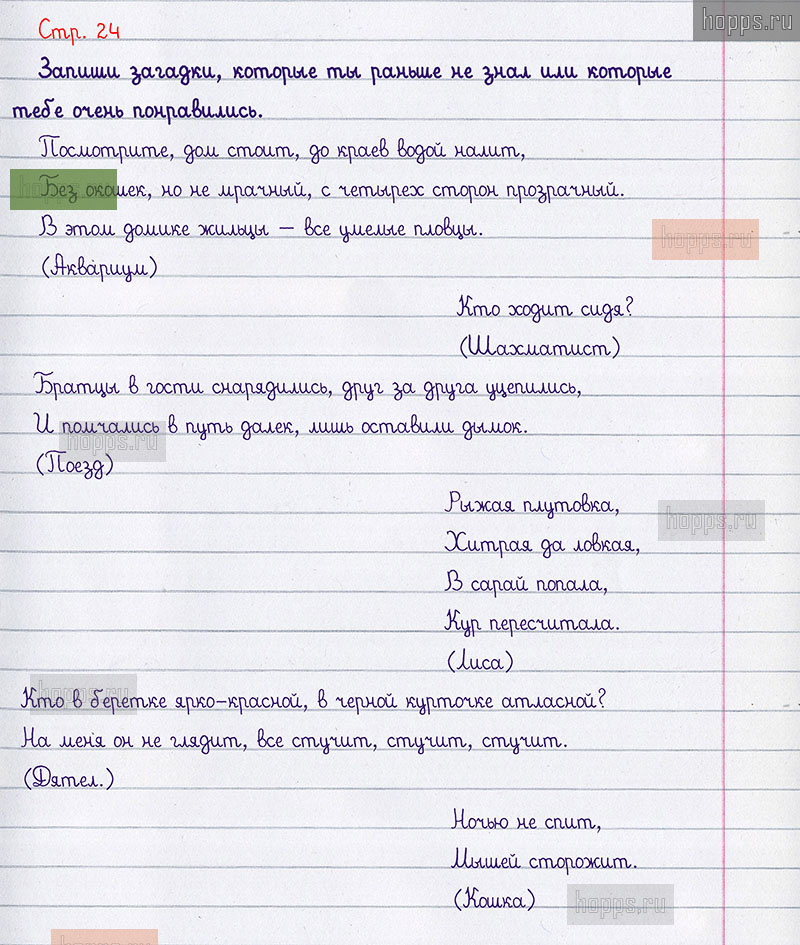 hopps.ru
Стр. 24
Запиши загадки, которые ты раньше не знал или которые
тебе очень понравились.
Посмотрите, дом стоит, до краев водой налит,
Без окошек, но не мрачный, с четырех сторон прозрачный.
В этом домике жильцы – все умелые пловцы.
hopps.ru
(Аквариум)
Кто ходит сидя?
(Шахматист)
Братцы в гости снарядились, друг за друга уцепились,
И помчались в путь далек, лишь оставили дымок.
hopps.ru
(Поезд)
Рыжая плутовка,
hopps.ru
Хитрая да ловкая,
В сарай попала,
Кур пересчитала.
(Лиса)
hopps.ru
Кто в беретке ярко-красной, в черной курточке атласной?
На меня он не глядит, все стучит, стучит, стучит.
(Дятел.)
Ночью не спит,
Мышей сторожит.
(Кошка)
hopps.ru